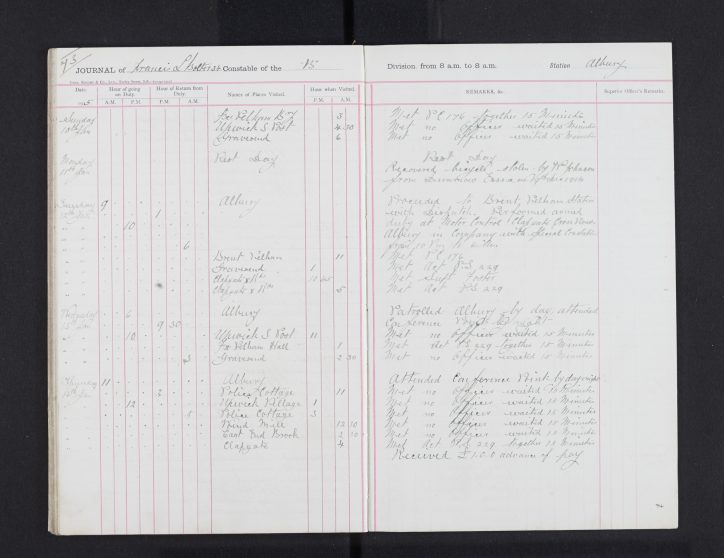 73
JOURNAL of Francis L Constable of the 15 Division from 8 a.m. to 8 a.m. Station Albury
Date Hour of going on Duty. Hour of Return from Duty. Names of Places Visited. Hour when Visited. REMARKS, &c. Superior Officer's Remarks.
1915 A.M. P.M. P.M. A.M. P.M. A.M.
Sunday Pelham 3 Met P.C. 176 together 15 Minutes
10th Jan Upwick S Post 4 30 Met no Officer waited 15 Minutes
Gravesend 6 Met no Officer waited 15 Minutes
Monday Rest Day Rest Day
11th Jan Recovered bicycle stolen by Wm Johnson
from Dunmow Essex
Tuesday 9 Albury Proceeded to Brent Pelham Station
12th Jan 1 with Despatch Performed armed
10 duty at Motor Control Clapgate Cross Roads
Albury in Company with Special Constable
6 from 10 P.m. to
Brent Pelham 11 Met P.C. 176
Gravesend 1 Met Act P.S. 229
Clapgate 10 45 Met
Clapgate 5 Met Act P.S. 229
Wednesday 6 Albury Patrolled Albury by day attended
13th Jan 9 30 Conference Point at night
10 Upwick S Post 11 Met no Officer waited 15 Minutes
Pelham Hall 1 Met Act P.S. 229 together 15 Minutes
3 Gravesend 2 30 Met no Officer waited 15 Minutes
Thursday 11 Albury Attended Conference Point by day & night
14th Jan 3 Police Cottage 11 Met no Officer waited 15 Minutes
12 Upwick Village 1 Met no Officer waited 15 Minutes
Police Cottage 3 Met no Officer waited 15 Minutes
Wind Mill 12 30 Met no Officer waited 15 Minutes
East End Brook 2 30 Met no Officer waited 15 Minutes
Clapgate 4 Met Act P.S. 229 together 15 Minutes
Received £1.0.0 advance of pay